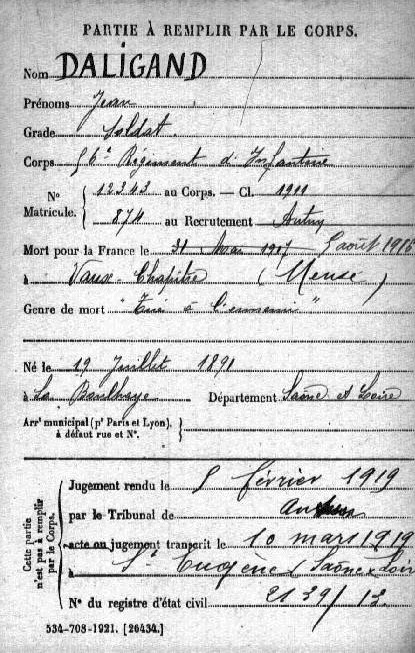 PARTIE À REMPLIR PAR LE CORPS.
Nom DALIGAND
Prénoms Jean
Grade Soldat
Corps 56e Régiment d'Infanterie
N° Matricule. { 12343 au Corps. — Cl. 1911
874 au Recrutement Autun
Mort pour la France le 31 Mai 1917 5 août 1916
à Vaux-Chapitre (Meuse)
Genre de mort "Tué à l'ennemi"
Né le 19 Juillet 1891
à La Boulaye Département Saône et Loire
Arrt municipal (pr Paris et Lyon), à défaut rue et N°. }
Cette partie n'est pas à remplir par le Corps.
Jugement rendu le 5 février 1919
par le Tribunal de Autun
acte ou jugement transcrit le 10 mars 1919
à St Eugène (Saône & Loire
N° du registre d'état civil 2139/13
534-708-1921. [26434.]